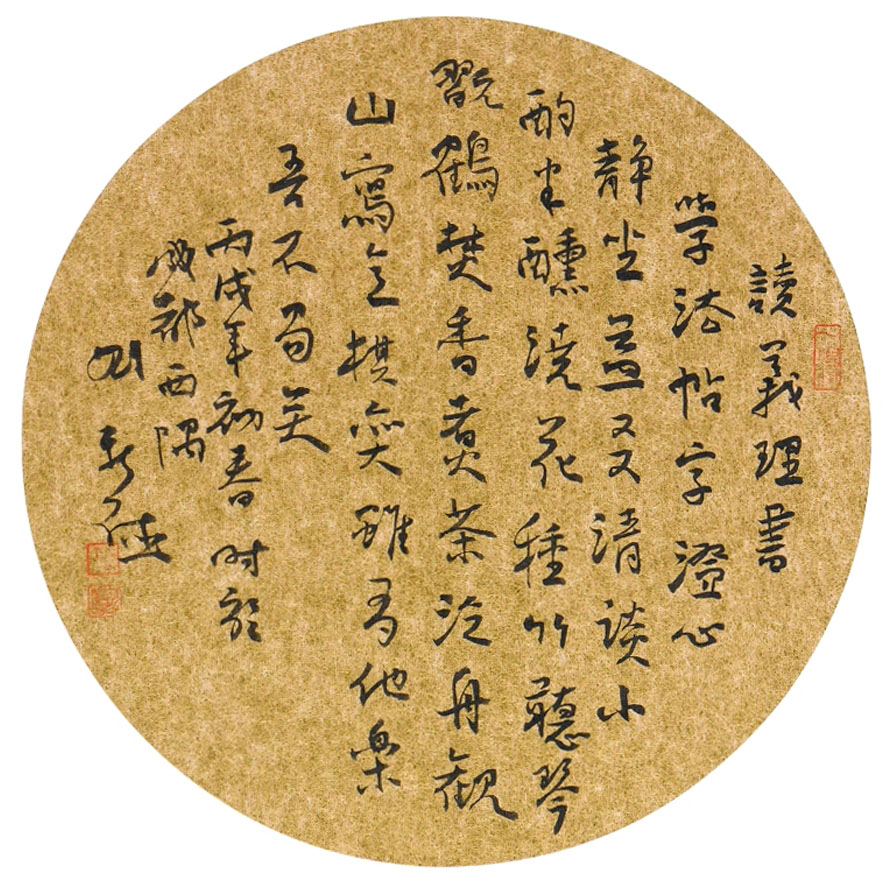 讀義理書
學法帖字澄心
靜坐益友清談小
酌半醺澆花種竹聽琴
翫鶴焚香煮茶泛舟觀
山寓意棋奕雖有他樂
吾不易矣
丙戌年初春时於
成都西隅
刘新德